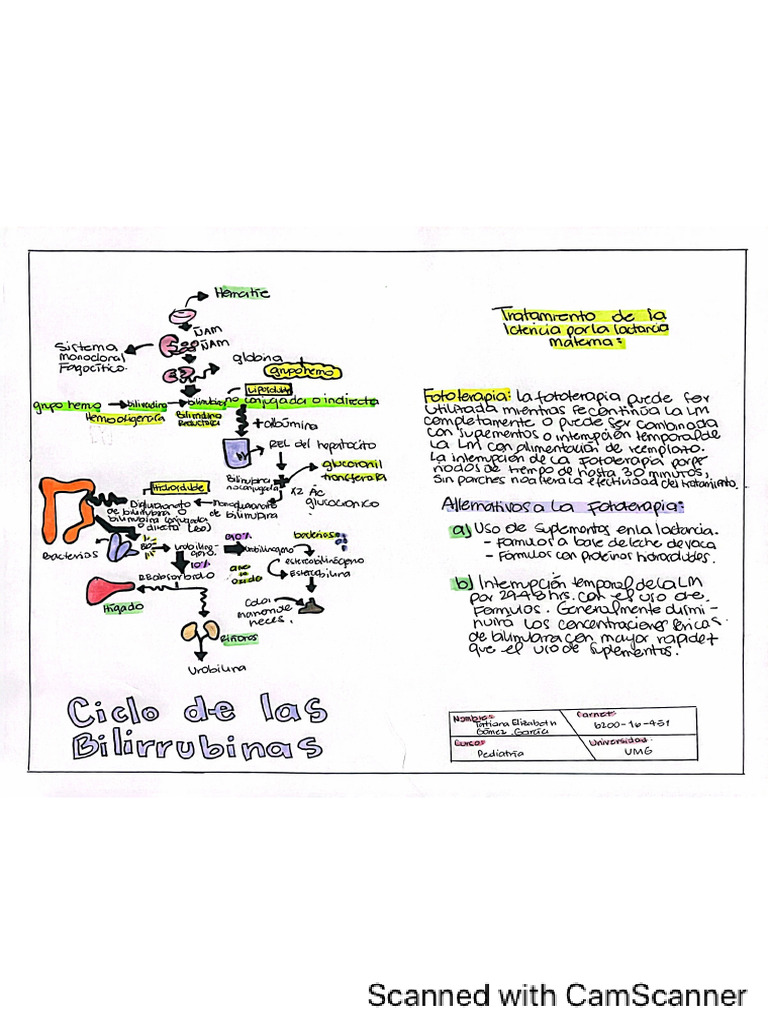 Hematíe
ÑAM
ÑAM
Sistema
monoclonal
Fagocítico.
globina
grupo hemo
Liposoluble
grupo hemo biliverdina bilirrubina no conjugada o indirecta
Hemooxigenasa
Biliverdina
Reductasa
+ albúmina
REL del hepatocito
glucoronil
transferasa
Bilirrubina
no conjugada
X2 Ac
glucoronico
Hidrosoluble
Diglucuronato
de bilirrubina o
bilirrubina conjugada
o directa (BD)
Monoglucuronato
de bilirrubina
Bacterias
BD
urobilinó
geno
90%
urobilinogeno
bacterias
10%
se
oxida
estercobilinógeno
Estercobilina
Reabsorbido
Hígado
Color
marron de
heces.
Riñones
Urobilina
Ciclo de las
Bilirrubinas
Tratamiento de la
Ictericia por la lactancia
materna:
Fototerapia: La fototerapia puede ser
utilizada mientras se continúa la LM
completamente o puede ser combinada
con suplementos o interrupción temporal de
la LM con alimentación de reemplazo.
La interrupción de la Fototerapia por pe-
riodos de tiempo de hasta 30 minutos,
sin parches no altera la efectividad del tratamiento.
Alternativas a la Fototerapia:
a) Uso de suplementos en la lactancia.
- Fórmulas a base de leche de vaca
- Fórmulas con proteínas hidrolizables.
b) Interrupción temporal de la LM
por 24-48 hrs. con el uso de
Formulas. Generalmente dismi-
nuirá las concentraciones séricas
de bilirrubina con mayor rapidez
que el uso de suplementos.
Nombre: Tatiana Elizabeth
Gómez García
Carnet:
6200-16-451
Curso:
Pediatría
Universidad.
UMG
Scanned with CamScanner